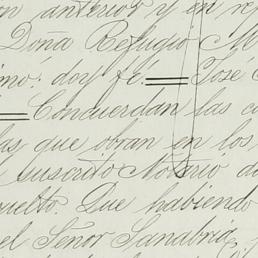 on anterior y en re
Doña Refugio M
imo: doy fé. José
Concuerdan las co
las que obran en los
suscrito Notario da
vuelto. Que habiendo
el Señor Sanabria